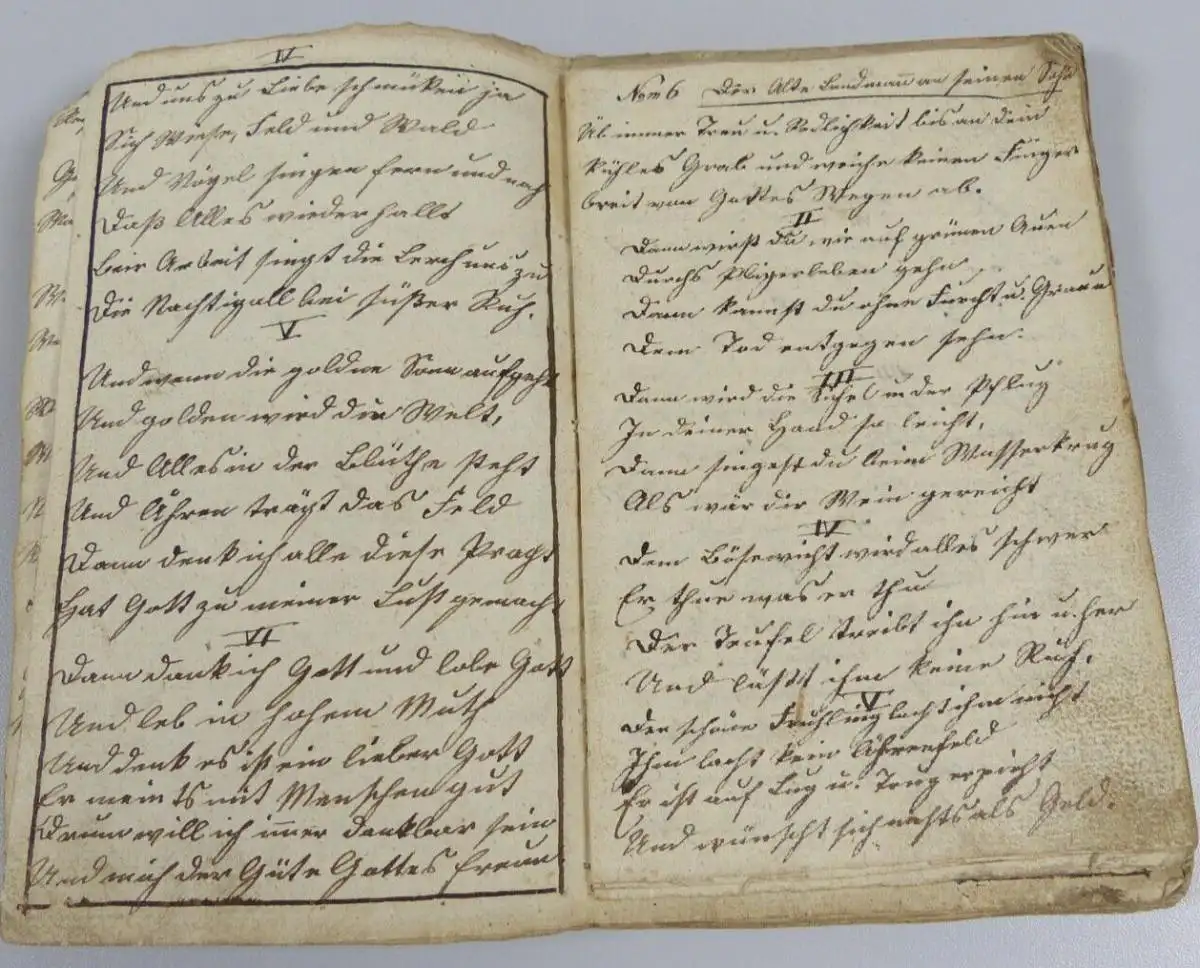 IV
Und uns zu Liebe schmücken ja
Sich Wiese, Feld und Wald
Und Vögel singen fern und nah
Daß Alles wiederhallt
Bei Arbeit singt die Lerch uns zu
Die Nachtigall bei süßer Ruh.
V
Und wenn die goldne Sonn aufgeht
Und golden wird die Welt,
Und Alles in der Blüthe steht
Und Ähren trägt das Feld
Dann denk ich alle diese Pracht
Hat Gott zu meiner Lust gemacht
VI
Dann dank ich Gott und lobe Gott
Und leb in hohem Muth
Und denk es ist ein lieber Gott
Er meint's mit Menschen gut
Drum will ich im̄er dankbar sein
Und mich der Güte Gottes freun.
Nom 6 Der Alte Landmann an seinen Sohn
Üb immer Treu u. Redlichkeit bis an dein
kühles Grab und weiche keinen Finger
breit von Gottes Wegen ab.
II
Dann wirst du wie auf grünen Auen
Durchs Pilgerleben gehn
Dann kannst du ohne Furcht u. Graun
Dem Tod entgegen sehn.
III
Dann wird die Sichel u der Pflug
In deiner Hand so leicht,
Dann singest du beim Wasserkrug
Als wär dir Wein gereicht
IV
Dem Bösewicht wird alles schwer
Er thue was er thu
Der Teufel treibt ihn hin u. her
Und läßt ihm keine Ruh.
V
Der schöne Frühling lacht ihm nicht
Ihm lacht kein Ährenfeld
Er ist auf Lug u. Trug erpicht
Und wünscht sich nichts als Geld.